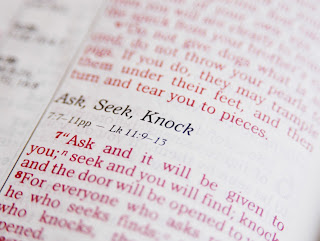 Do not give dogs what is
do not throw your pearls
pigs. If you do, they may tramp
them under their feet, and then
turn and tear you to pieces.
Ask, Seek, Knock
7:7-11pp — Lk 11:9-13
7“Ask and it will be given to
you;ⁿ seek and you will find; knock
and the door will be opened to
8For everyone who asks
he who seeks finds;
who knocks, th
opened.